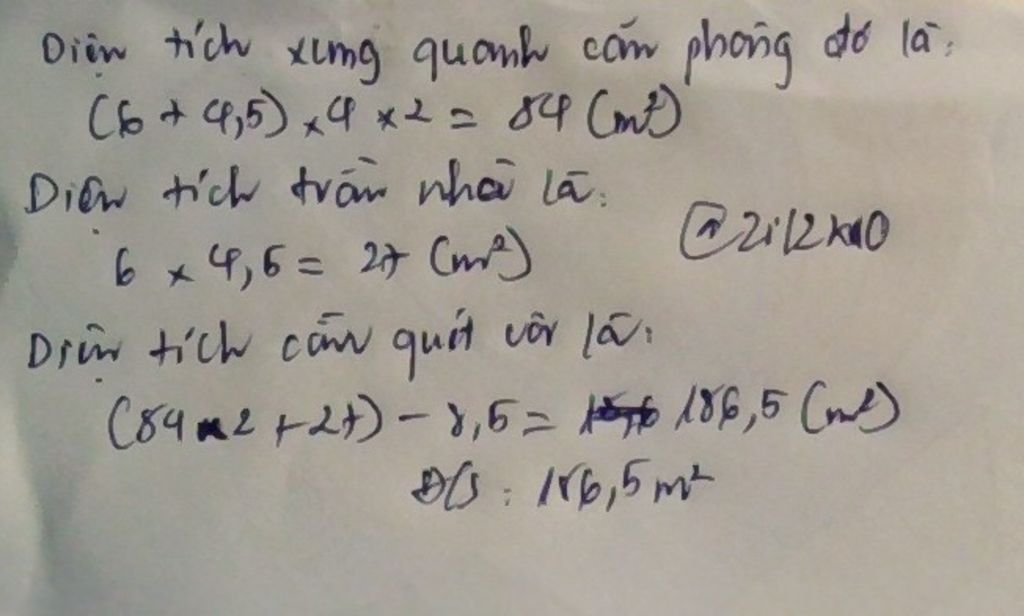 Diện tích xung quanh căn phòng đó là:
(6 + 4,5) x 4 x 2 = 84 (m²)
Diện tích trần nhà là:
6 x 4,5 = 27 (m²)
Diện tích cần quét vôi là:
(84 x 2 + 27) - 8,5 = 186,5 (m²)
Đ/S : 186,5 m²